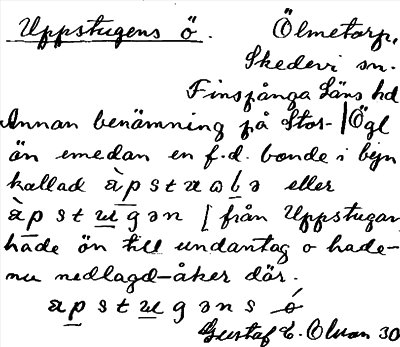 Uppstugens ö. Ölmetorp,
Skedevi sn.
Finspånga Läns hd
Annan benämning på Stor- | Ögl
ön emedan en f.d. bonde i byn
kallad àpstuɡə eller
àpstuɡən [från Uppstugan,
hade ön till undantag o hade
nu nedlagd åker där.
apstuɡəns ö́
Gustaf E. Olsson 30